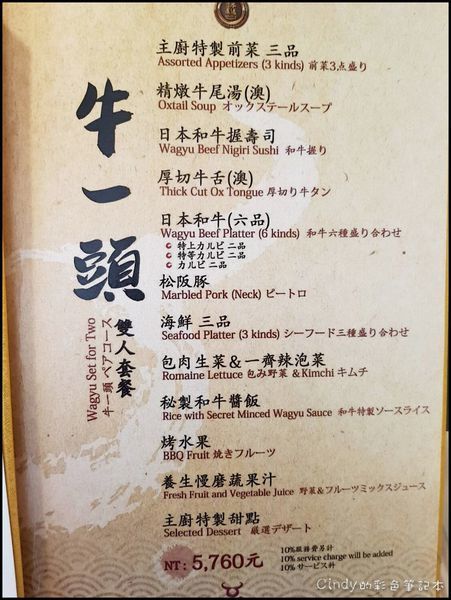 牛一頭
雙人套餐
Wagyu Set for Two
牛一頭 ペアコース
主廚特製前菜 三品
Assorted Appetizers (3 kinds) 前菜3点盛り
精燉牛尾湯(澳)
Oxtail Soup オックステールスープ
日本和牛握壽司
Wagyu Beef Nigiri Sushi 和牛握り
厚切牛舌(澳)
Thick Cut Ox Tongue 厚切り牛タン
日本和牛(六品)
Wagyu Beef Platter (6 kinds) 和牛六種盛り合わせ
特上カルビ 二品
特等カルビ 二品
カルビ 二品
松阪豚
Marbled Pork (Neck) ピートロ
海鮮 三品
Seafood Platter (3 kinds) シーフード三種盛り合わせ
包肉生菜＆一齊辣泡菜
Romaine Lettuce 包み野菜 ＆Kimchi キムチ
秘製和牛醬飯
Rice with Secret Minced Wagyu Sauce 和牛特製ソースライス
烤水果
BBQ Fruit 焼きフルーツ
養生慢磨蔬果汁
Fresh Fruit and Vegetable Juice 野菜＆フルーツミックスジュース
主廚特製甜點
Selected Dessert 厳選デザート
NT: 5,760元
10%服務費另計
10% service charge will be added
10% サービス料
Cindy的彩色筆記本